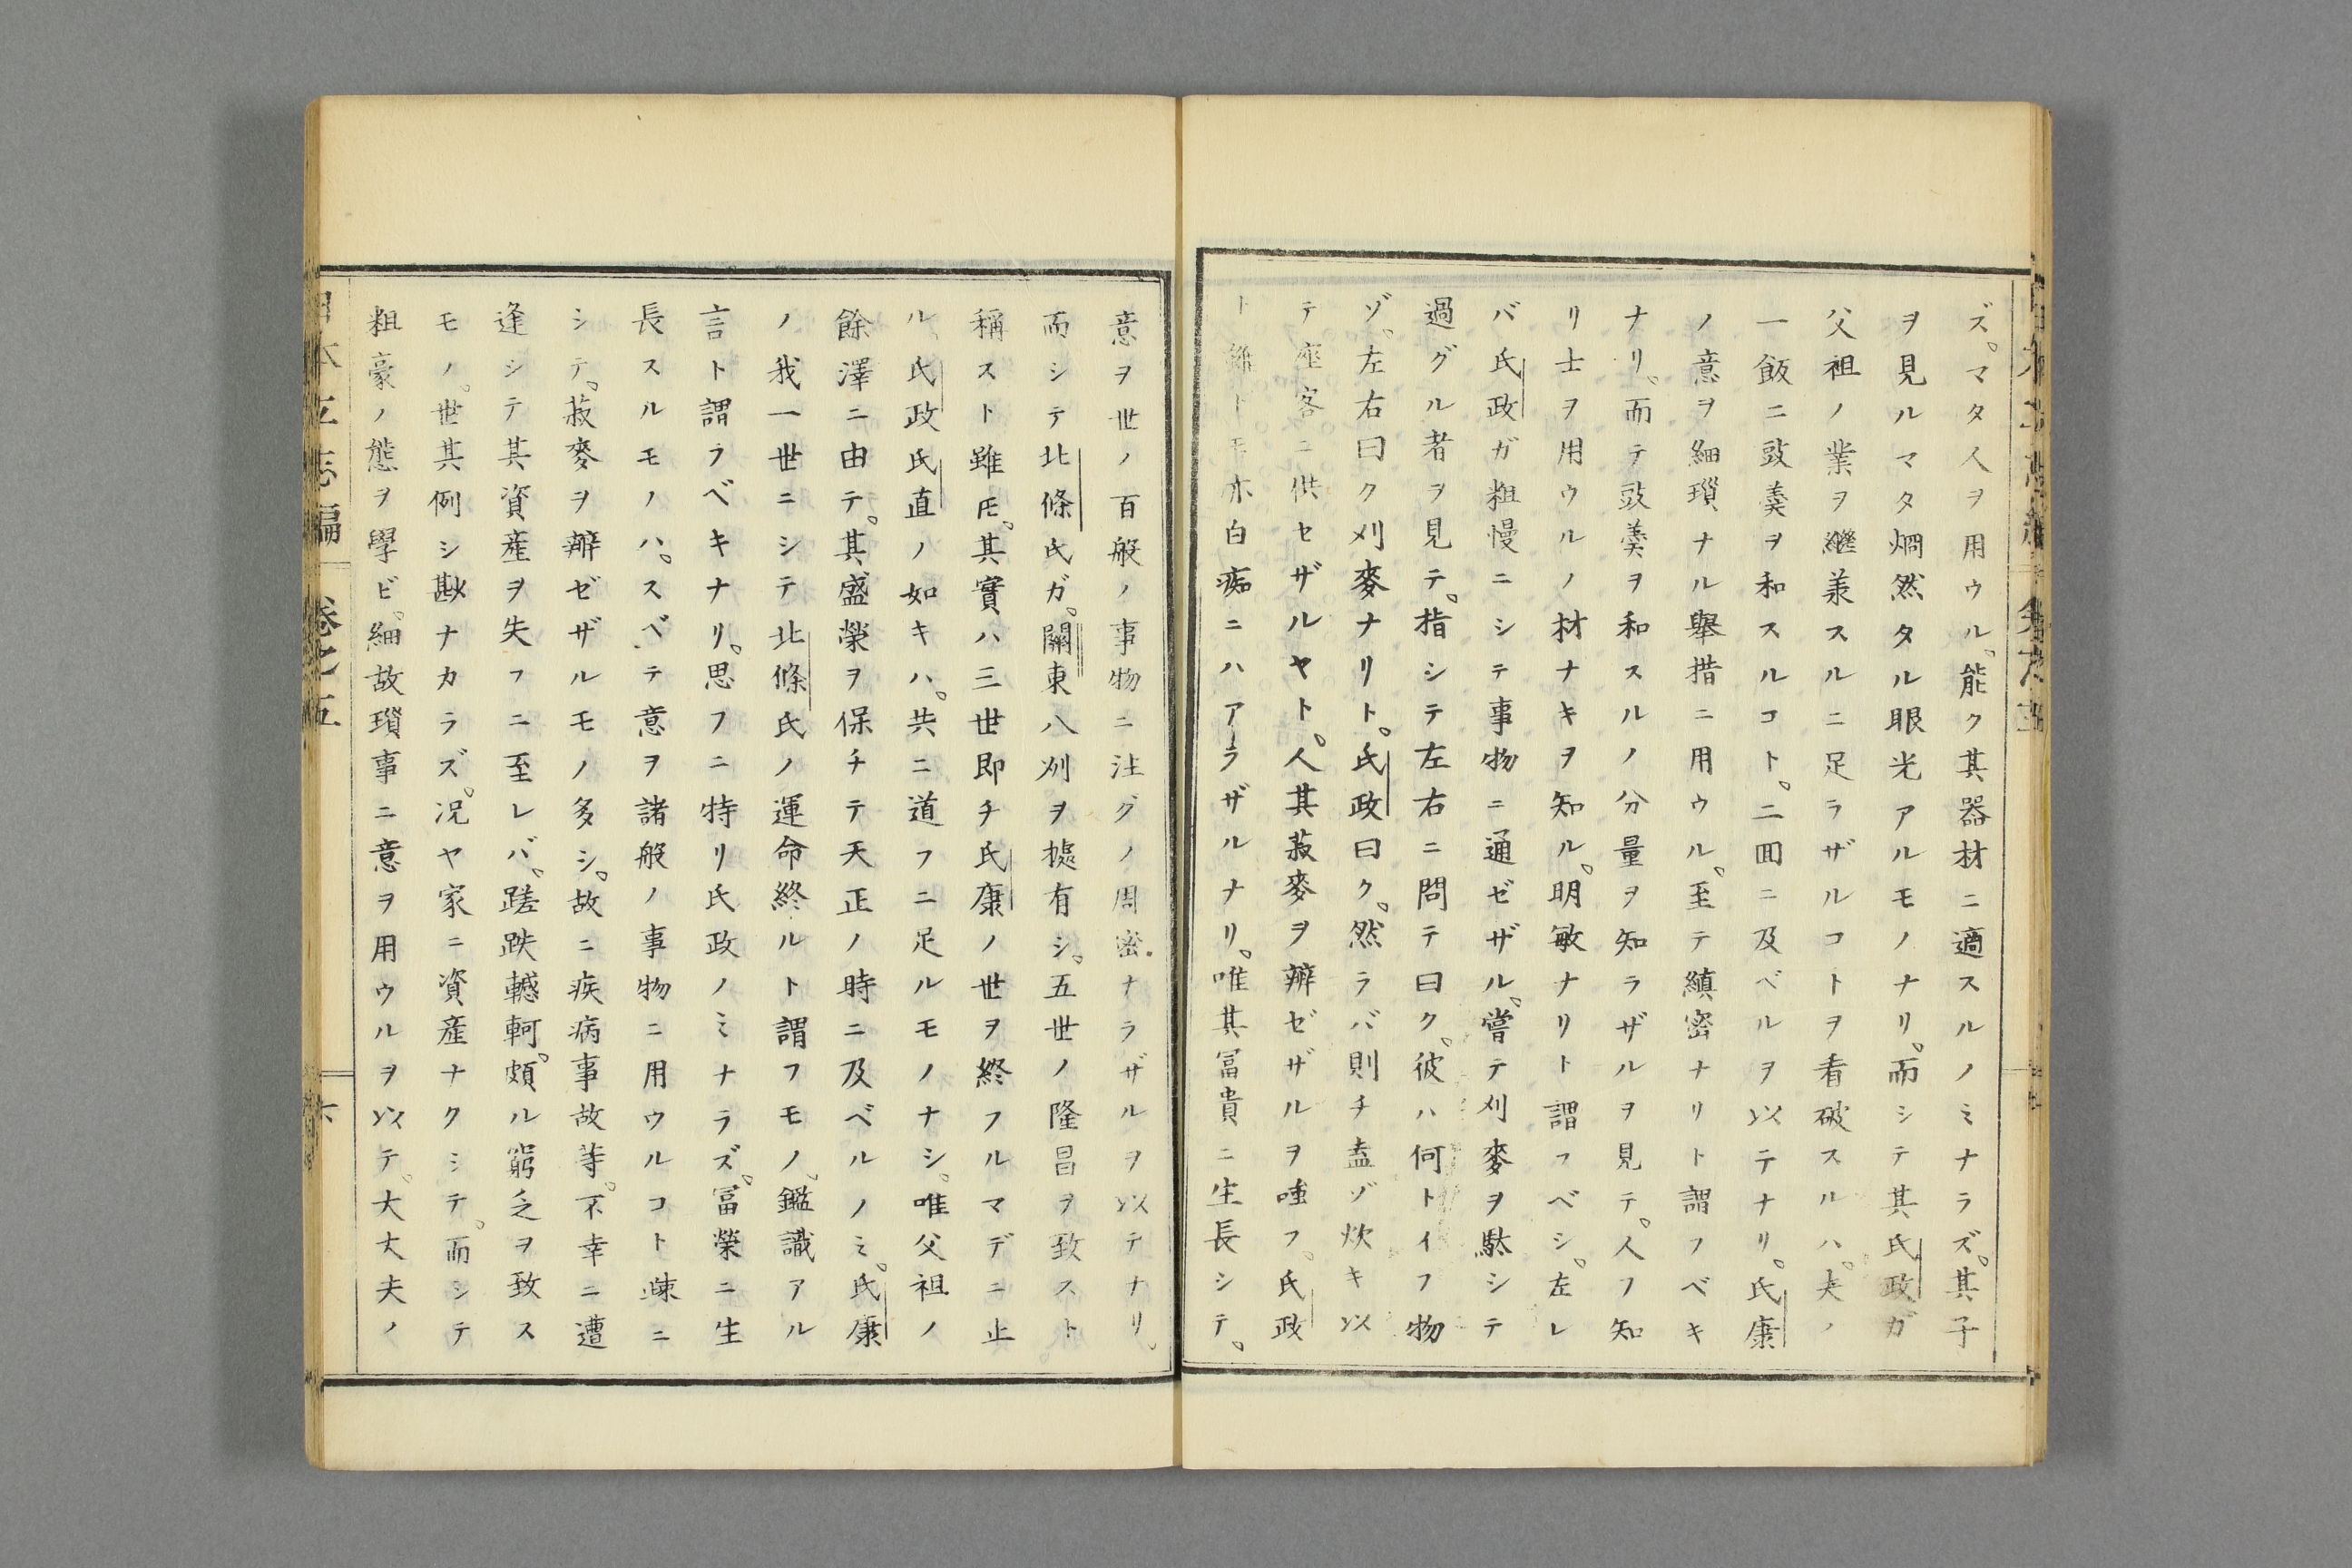 ズ。マタ人ヲ用ウル。能ク其器材ニ適スルノミナラズ。其子
ヲ見ルマタ烱然タル眼光アルモノナリ。而シテ其氏政ガ
父祖ノ業ヲ繼羕スルニ足ラザルコトヲ看破スルハ。夫ノ
一飯ニ豉羹ヲ和スルコト。二囬ニ及ベルヲ以テナリ。氏康
ノ意ヲ細瑣ナル舉措ニ用ウル。至テ縝密ナリト謂フベキ
ナリ。而テ豉羹ヲ和スルノ分量ヲ知ラザルヲ見テ。人フ知
リ士ヲ用ウルノ材ナキヲ知ル。明敏ナリト謂フベシ。左レ
バ氏政ガ粗慢ニシテ事物ニ通ゼザル。嘗テ刈麥ヲ駄シテ
過グル者ヲ見テ。指シテ左右ニ問テ曰ク。彼ハ何トイフ物
ゾ。左右曰ク刈麥ナリト。氏政曰ク。然ラバ則チ盍ゾ炊キ以
テ座客ニ供セザルヤト。人其菽麥ヲ辨ゼザルヲ嗤フ。氏政
ト雖ドモ亦白痴ニハアラザルナリ。唯其冨貴ニ生長シテ。
意ヲ世ノ百般ノ事物ニ注グノ周密ナラザルヲ以テナリ。
而シテ北條氏ガ。關東八州ヲ㨿有シ。五世ノ隆昌ヲ致スト
稱スト雖𪜈。其實ハ三世即チ氏康ノ世ヲ終フルマデニ止
ル、氏政氏直ノ如キハ。共ニ道フニ足ルモノナシ。唯父祖ノ
餘澤ニ由テ。其盛榮ヲ保チテ天正ノ時ニ及ベルノミ。氏康
ノ我一世ニシテ北條氏ノ運命終ルト謂フモノ。鑑識アル
言ト謂ラベキナリ。思フニ特リ氏政ノミナラズ。冨榮ニ生
長スルモノハ。スベテ意ヲ諸般ノ事物ニ用ウルコト疎ニ
シテ。菽麥ヲ辨ゼザルモノ多シ。故ニ疾病事故等。不幸ニ遭
逢シテ其資産ヲ失フニ至レバ。蹉跌轗軻。頗ル窮乏ヲ致ス
モノ。世其例シ尠ナカラズ。况ヤ家ニ資産ナクシテ。而シテ
粗豪ノ態ヲ學ビ。細故瑣事ニ意ヲ用ウルヲ以テ。大丈夫ノ
日本立志編 卷之五 六